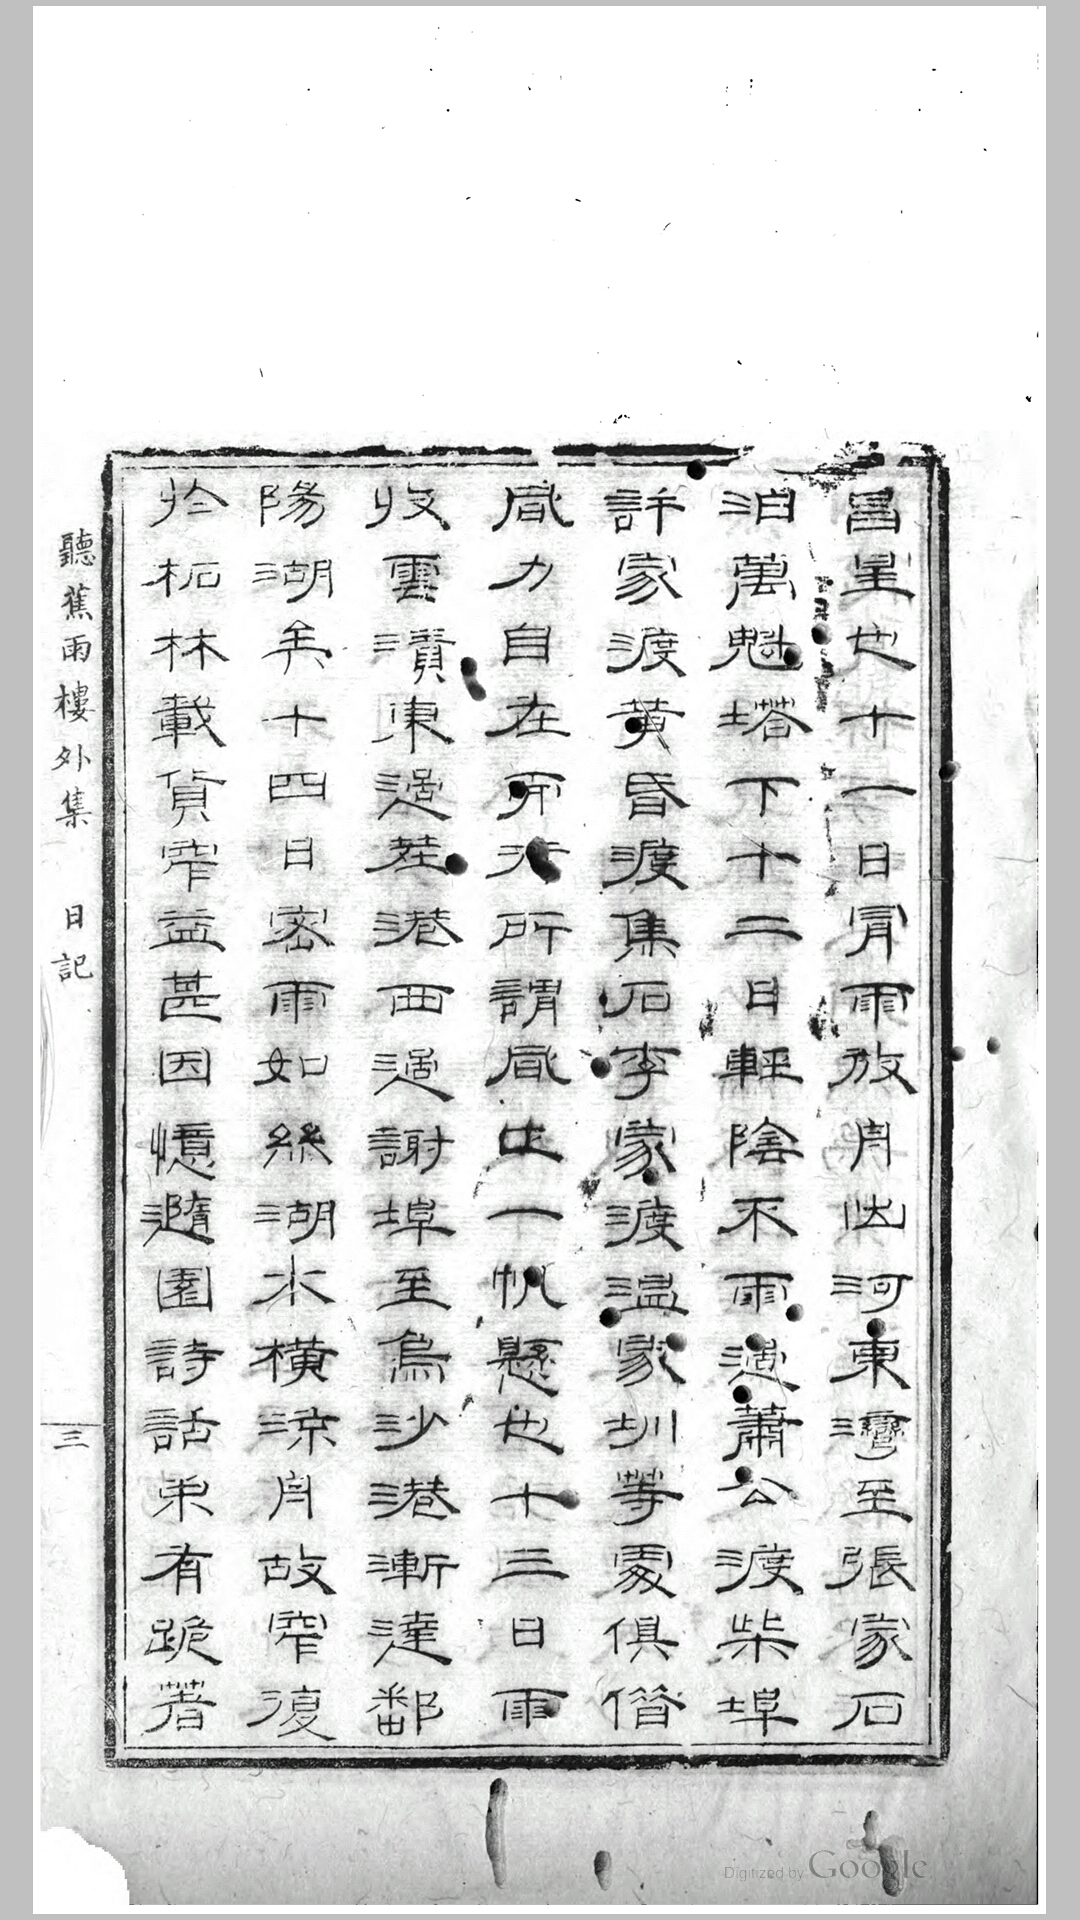 昌也十一日冒雨放舟出河東灣至張家石
泊萬魁塔下十二日輕陰不雨過蕭公渡柴埠
許家渡黃昏渡集石李家渡溫家圳等處俱借
風力自在而行所謂風正一帆懸也十三日雨
收雲漬東過莊港西過謝埠至烏沙港漸達鄱
陽湖矣十四日密雨如絲湖水橫流舟故窄復
於柘林載貨窄益甚因憶隨園詩話中有跪著
聽蕉雨樓外集 日記 三
Digitized by Google